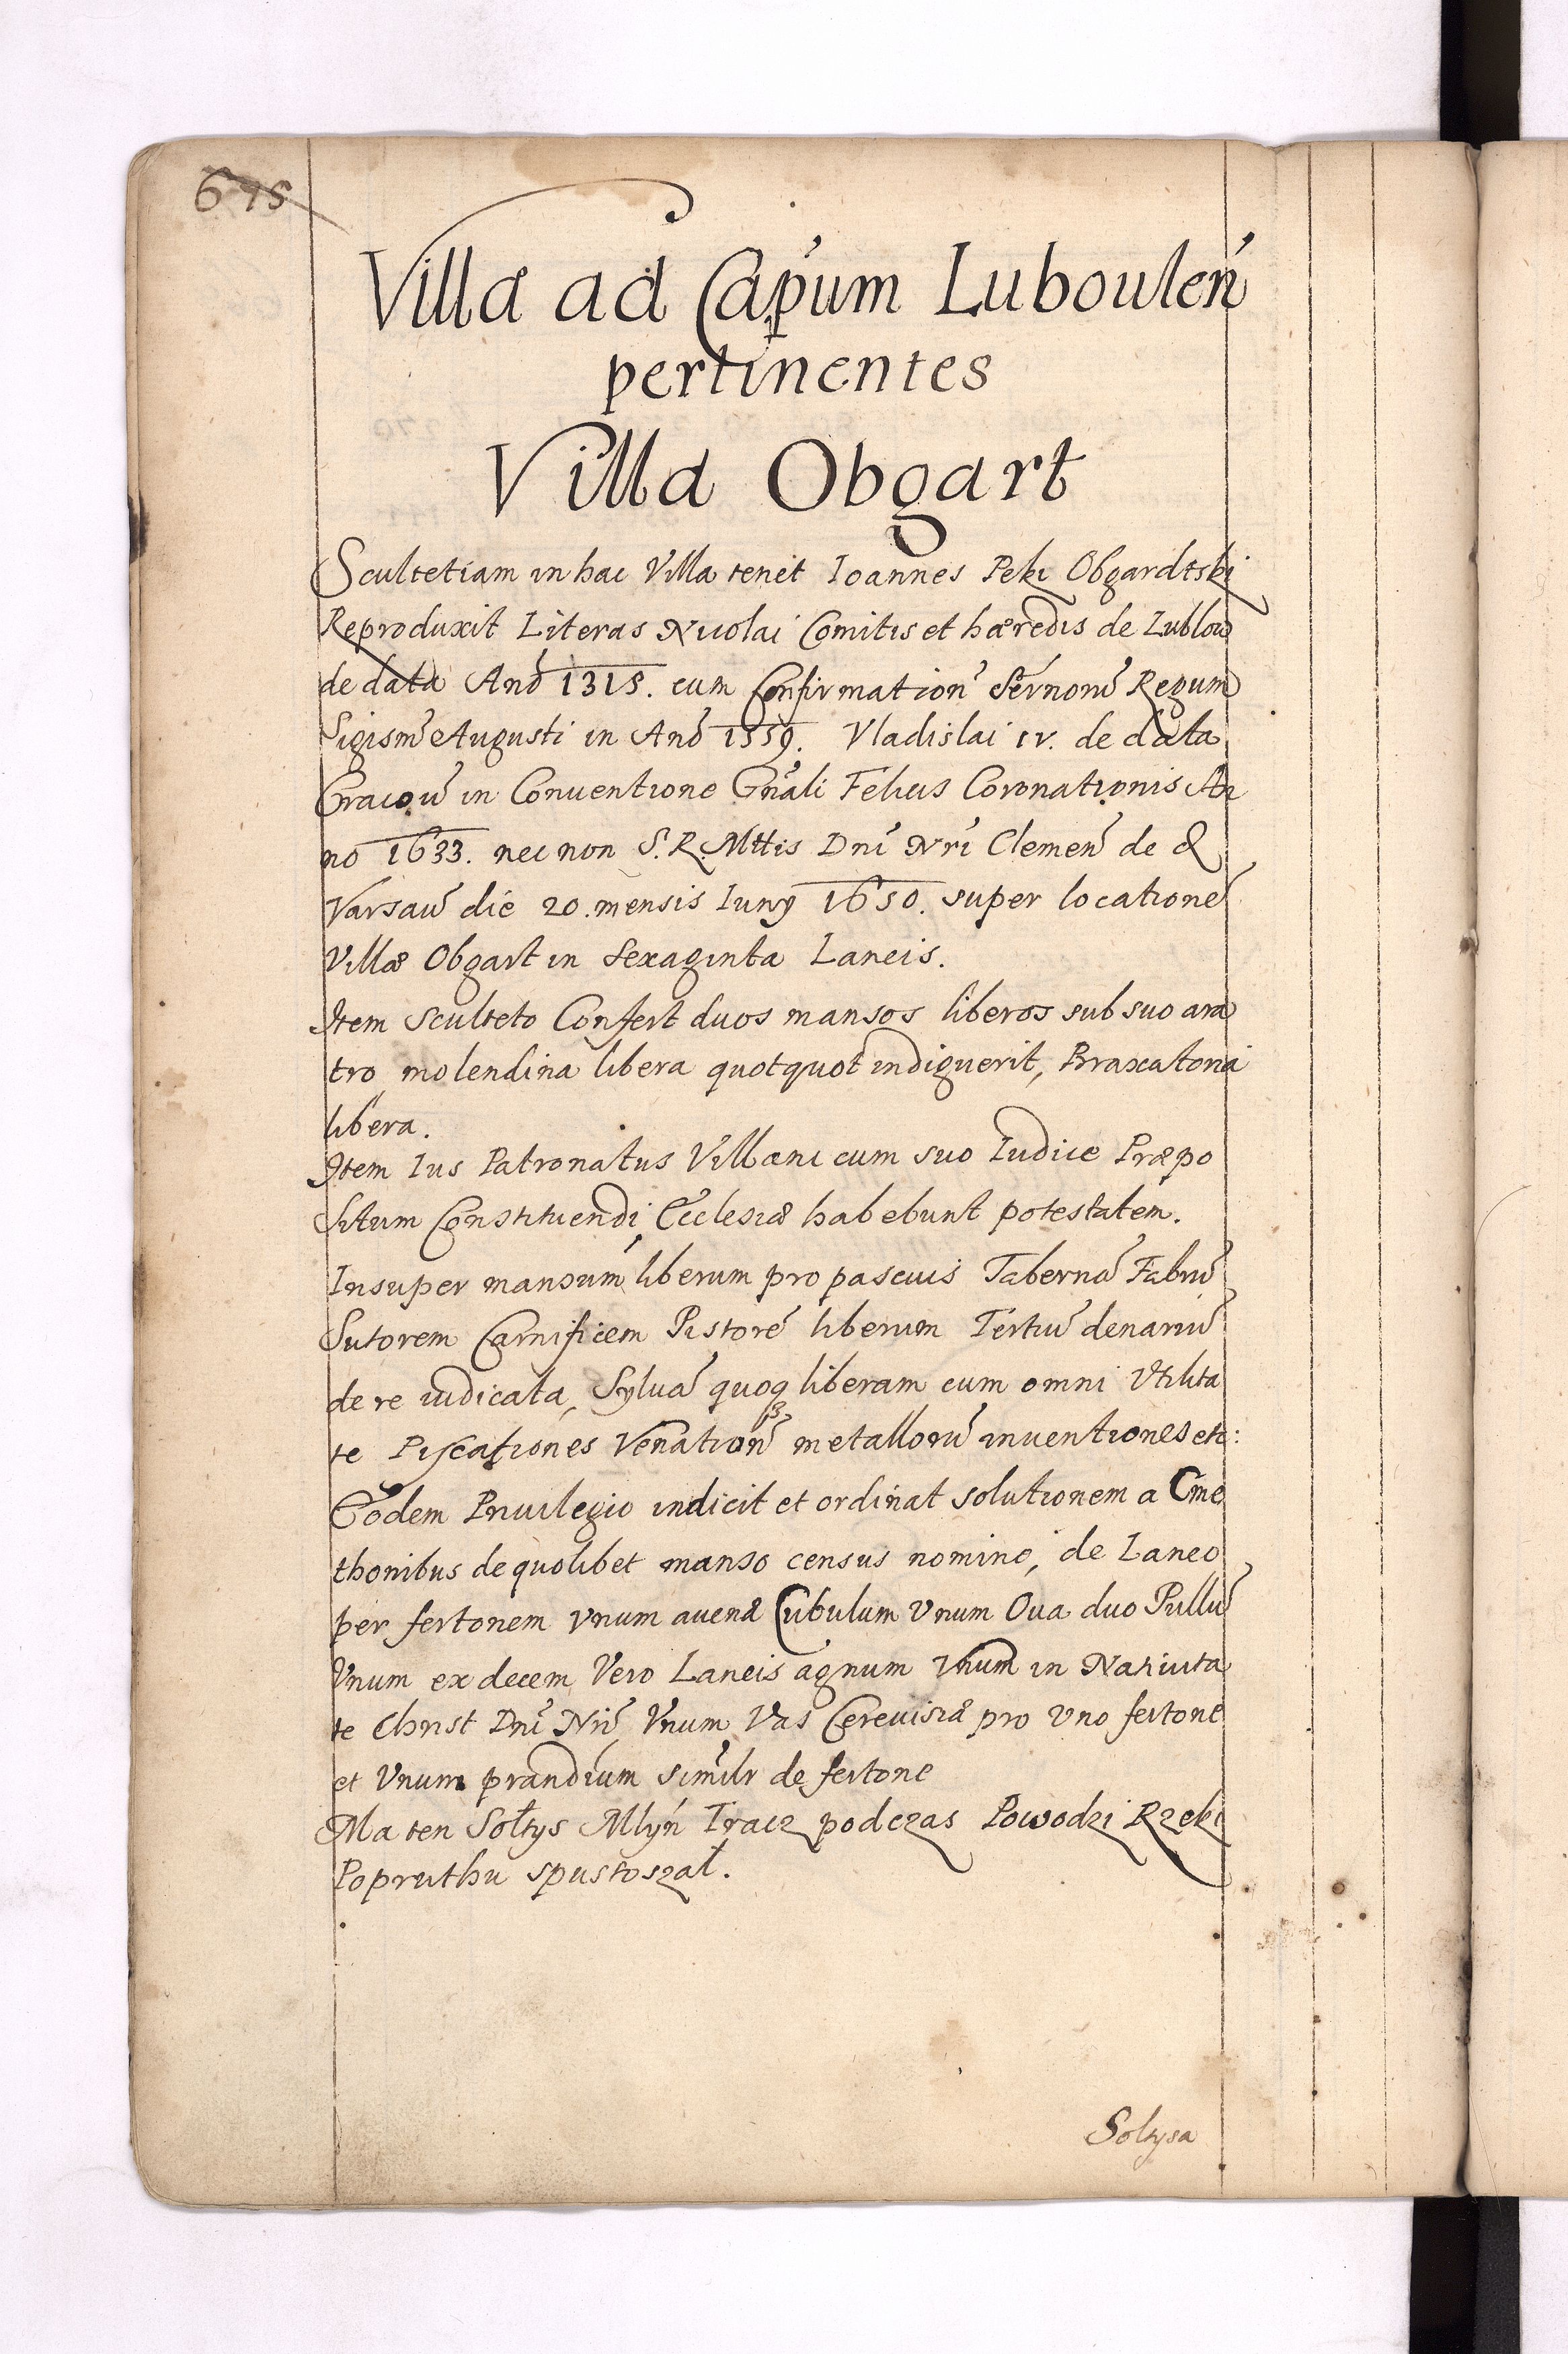 675
Villæ ad Cap̃um Luboulen̄
pertinentes
Villa Obgart
Scultetiam in hac Villa tenet Ioannes Peki Obgardtski
Reproduxit Literas Nicolai Comitis et hæredis de Lublow
de data Anō 1315. cum Confirmationē Sērnorū Regum
Sigismē Augusti in Anō 1559. Vladislai IV. de data
Cracoū in Conventione Gnāli Felicis Coronationis An
no 1633. nec non S. R. Mttis Dnī Nrī Clemen̄ de &
Varsaū die 20. mensis Iuny 1650. super locationē
Villæ Obgart in Sexaginta Laneis.
Item Sculteto Confert duos mansos liberos sub suo ara
tro molendina libera quotquot indiguerit, Braxatoria
libera.
Item Ius Patronatus Villani cum suo Iudice Præpo
situm Constituendi Ecclesiæ habebunt potestatem.
Insuper mansum liberum pro pascuis Tabernā Fabrū
Sutorem Carnificem Pistorē liberum Tertiū denariū
de re iudicata, Syluā quoq₃ liberam cum omni Vtilita
te Piscationes Venationē metallorū inuentiones etc:
Eodem Priuilegio indicit et ordinat solutionem a Cme
thonibus de quolibet manso census nomine, de Laneo
per fertonem vnum auenæ Cubulum Vnum Oua duo Pullū
Vnum ex decem Vero Laneis agnum Vnum in Natiuita
te Christ Dnī Nrī Vnum Vas Cereuisiæ pro Vno fertone
et Vnum prandium similr de fertone
Ma ten Sołtys Młyń Tracz podczas Powodzi Rzeki
Popruthu spustoszał.
Soltysa